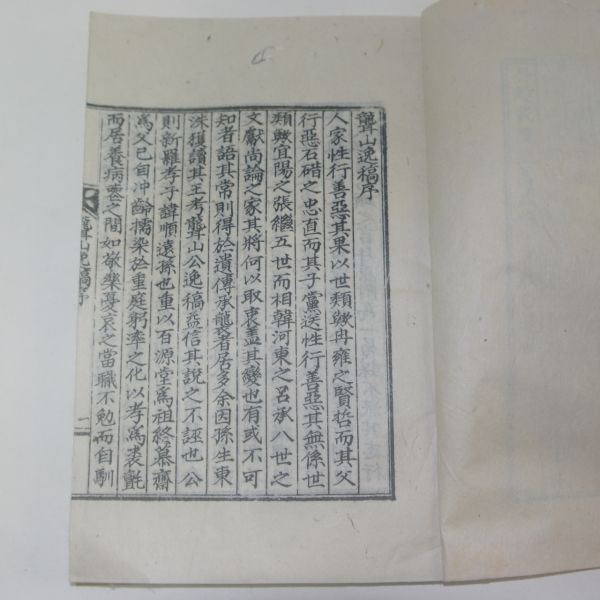 聾山逸稿序
人家性行善惡其果以世類歟冉雍之賢哲而其父
行惡石碏之忠直而其子黨逆性行善惡其無係世
類歟宜陽之張繼五世而相韓河東之呂承八世之
文獻尚論之家其將何以取衷盖其變也有或不可
知者語其常則得於遺傳承襲者居多余因孫生東
洙獲讀其王考聾山公逸稿益信其說之不誣也公
則新羅孝子諱順遠孫也重以百源堂爲祖終慕齋
爲父已自冲齡擂染於重庭躬率之化以孝爲裘氈
而居養病喪之間如敬樂憂哀之當職不勉而自馴
聾山逸稿序
一